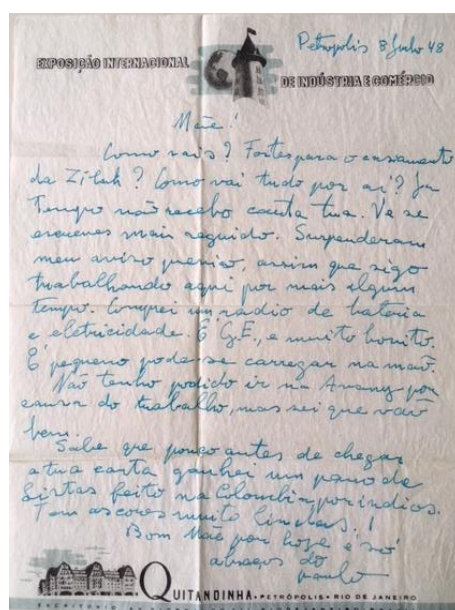 Petropolis 8 Julho 48
EXPOSIÇÃO INTERNACIONAL
DE INDÚSTRIA E COMÉRCIO
Mãe!
Como vais? Fostes para o casamento
da Zilah? Como vai tudo por ai? Ja
Tempo não recebo carta tua. Ve se
escreves mais seguido. Suspenderam
meu aviso previo, assim que sigo
trabalhando aqui por mais algum
tempo. Comprei um radio de bateria
e eletricidade. É G.E., e muito bonito.
É pequeno pode-se carregar na mão.
Não tenho podido ir na por
causa do trabalho, mas sei que vão
bem.
Sabe que pouco antes de chegar
a tua carta ganhei um pano de
feito na Colombia por indios.
Tem as cores muito lindas!
Bom Mãe por hoje é só
abraços do
Paulo
QUITANDINHA • PETRÓPOLIS • RIO DE JANEIRO